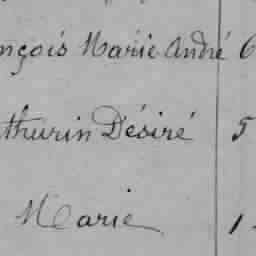 nçois Marie André 6
thurin Désiré 5
Marie 1